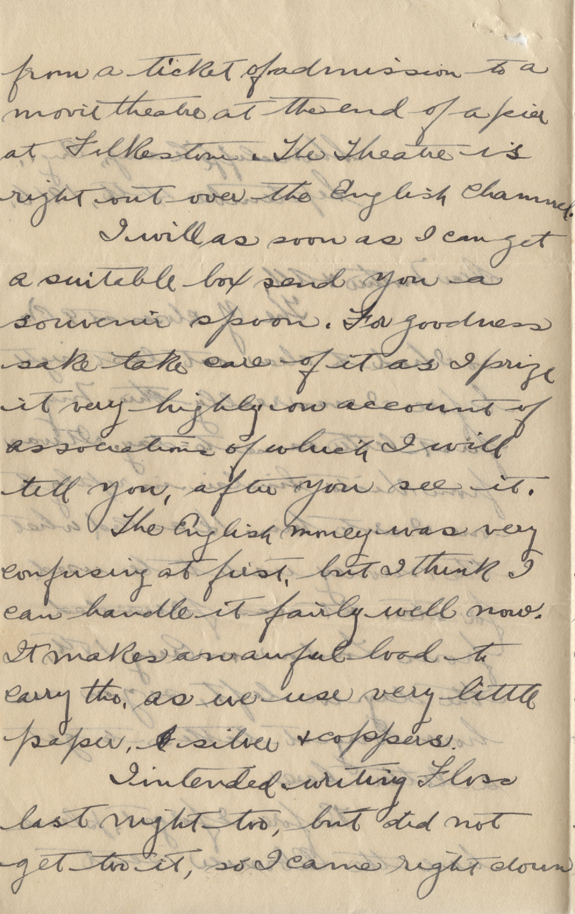 from a ticket of admission to a
movie theatre at the end of a pier
at Filkeston. The Theatre is
right out over the English Channel.
I will as soon as I can get
a suitable box send you a
souvenir spoon. For goodness
sake take care of it as I prize
it very highly on account of
associations of which I will
tell you, after you see it.
The English money was very
confusing at first, but I think I
can handle it fairly well now.
It makes an awful load to
carry tho, as we use very little
paper, silver & coppers.
I intended writing Floss
last night too, but did not
get to it, so I came right down